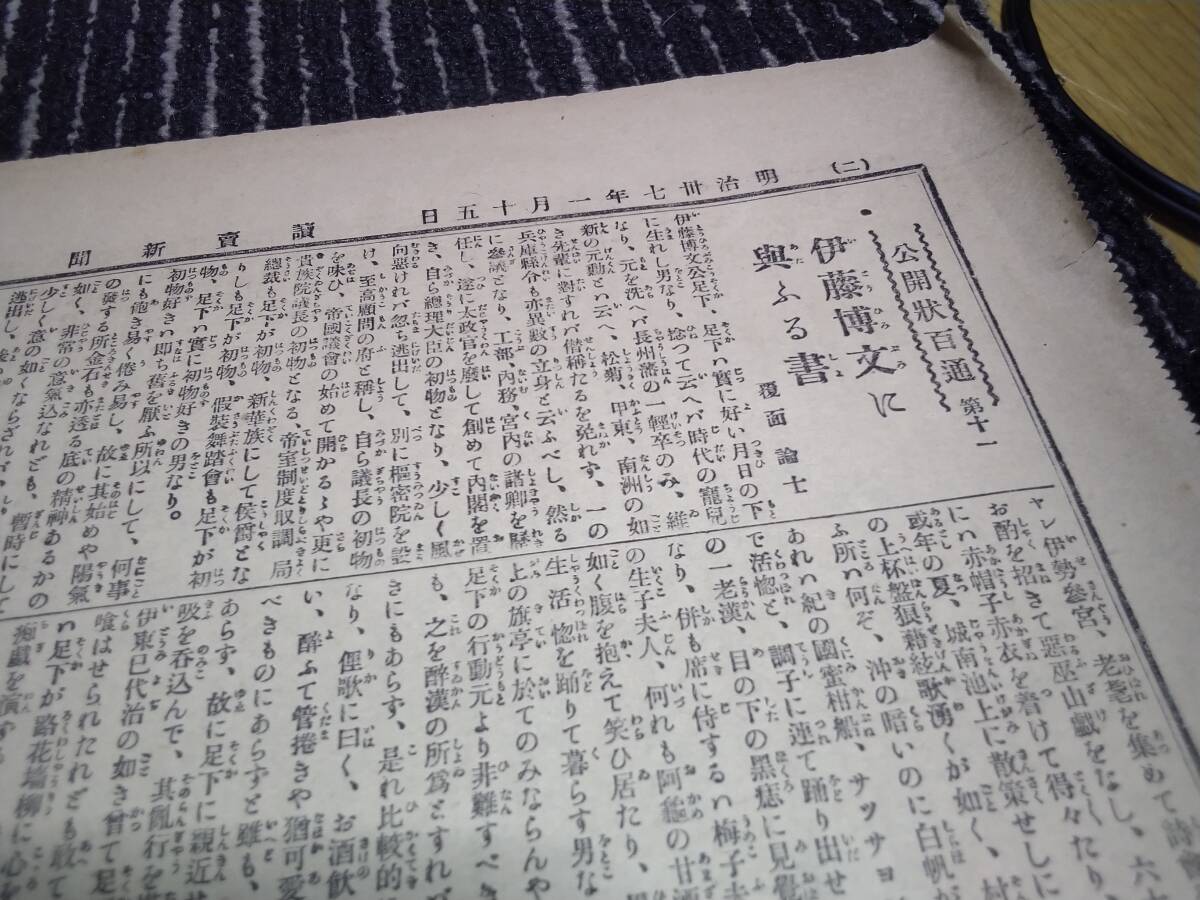 (二)
明治卅七年一月十五日
讀賣新聞
公開狀百通 第十一
伊藤博文に
與ふる書
覆面論士
伊藤博文公足下、足下ハ實に好い月日の下
に生れし男なり、捻つて云へバ時代の寵兒
なり、元を洗へバ長州藩の一輕卒のみ、維
新の元勳とハ云へ、松菊、甲東、南洲の如
き先輩に對すれバ僣稱たるを免れず、一の
兵庫縣令も亦異數の立身と云ふべし、然る
に參議となり、工部、內務、宮內の諸卿を歷
任し、遂に太政官を廢して創めて內閣を置
き、自ら總理大臣の初物となり、少しく風
向惡けれバ忽ち逃出して、別に樞密院を設
け、至高顧問の府と稱し、自ら議長の初物
を味ひ、帝國議會の始めて開かるゝや更に
貴族院議長の初物となる、帝室制度取調局
總裁も足下が初物、新華族にして侯爵とな
りしも足下が初物、假裝舞踏會も足下が初
物、足下ハ實に初物好きの男なり。
初物好きハ即ち舊を厭ふ所以にして、何事
にも飽き易く倦み易し、故に其始めや陽氣
の發する所金石も亦透る底の精神あるかの
如く、非常の意氣込なれども、暫時にして
少しく意の如くならざれバ、
逃出し、
ヤレ伊勢參宮、老耄を集めて詩
お酌を招きて惡巫山戲をなし、六
にハ赤帽子赤衣を着けて得々たり、
或年の夏、城南池上に散策せしに
の上杯盤狼藉絃歌湧くが如く、村
ふ所ハ何ぞ、沖の暗いのに白帆が
あれハ紀の國蜜柑船、サッサヨ
で活惚と、調子に連て踊り出せ
の一老漢、目の下の黑痣に見覺
なり、併も席に侍するハ梅子夫
の生子夫人、何れも阿龜の甘酒
如く腹を抱えて笑ひ居たり、
生活惚を踊りて暮らす男な
上の旗亭に於てのみならんや
足下の行動元より非難すべき
も、之を醉漢の所爲とすれバ
きにもあらず、是れ比較的
なり、俚歌に曰く、お酒飮
い、醉ふて管捲きや猶可愛
べきものにあらずと雖も、
あらず、故に足下に親近
吸を呑込んで、其亂行を
伊東巳代治の如き曾て足
喰はせられたれども敢て
ハ足下が路花墻柳に心を
痴戲を演ずる